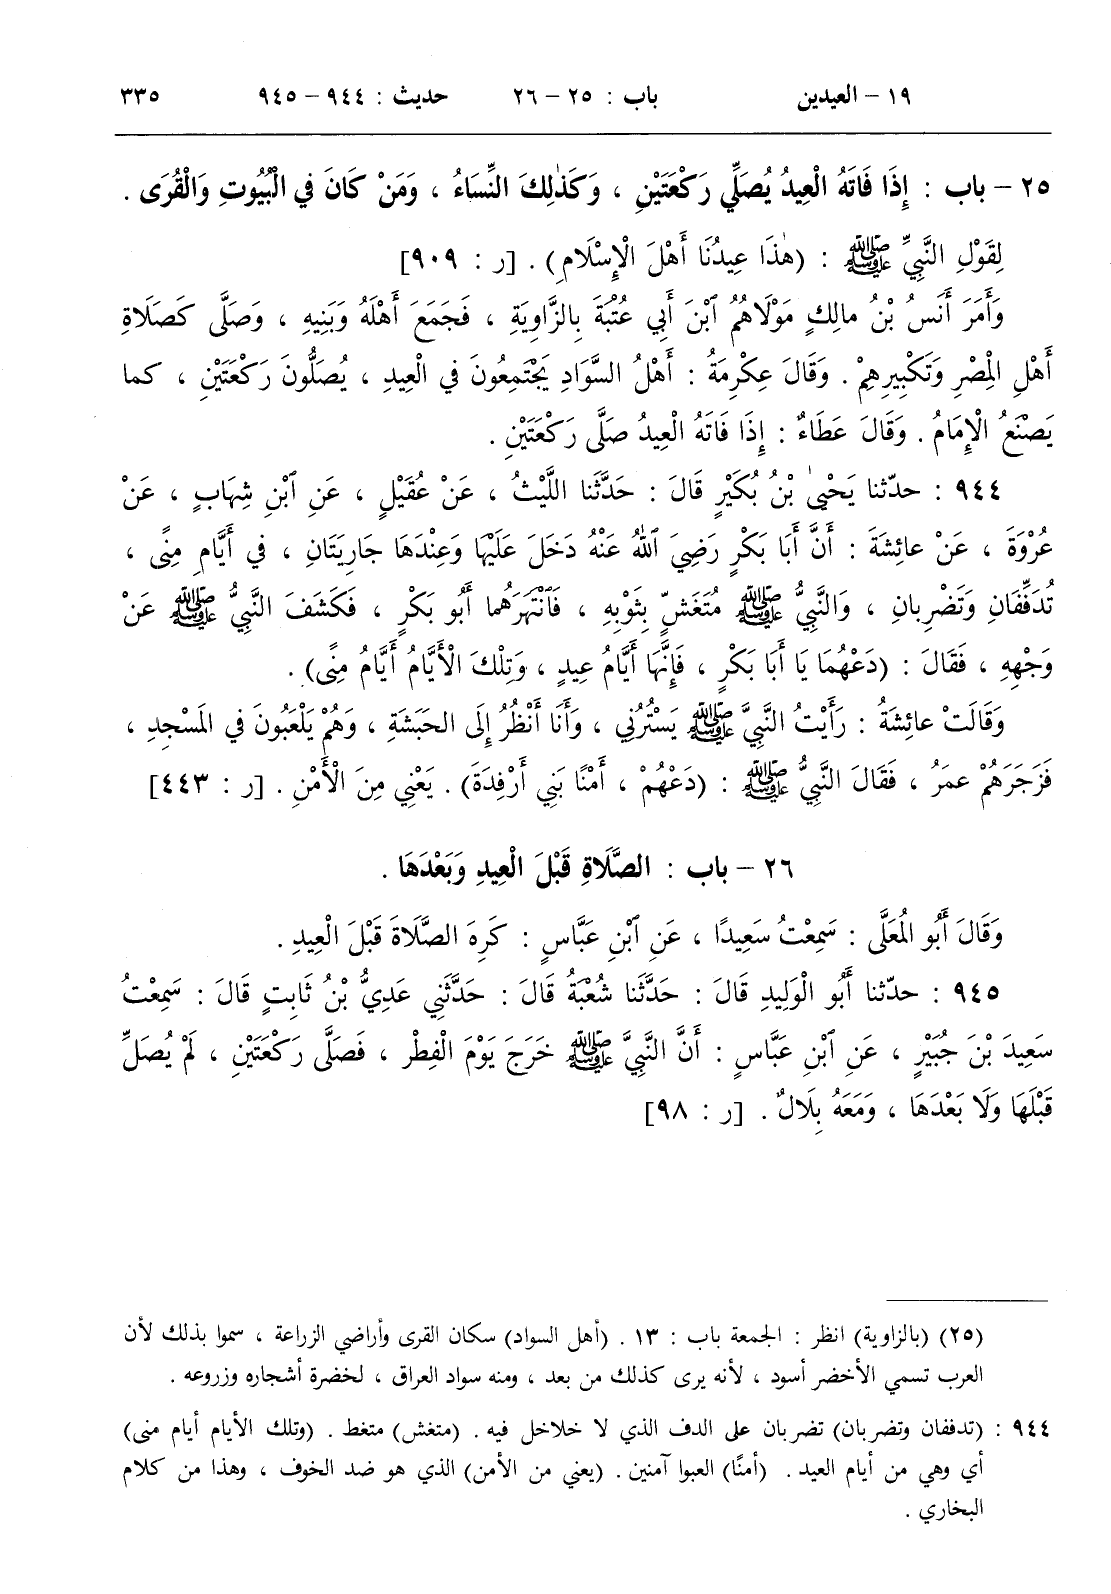 ١٩ – العيدين باب : ٢٥ – ٢٦ حديث : ٩٤٤ – ٩٤٥ ٣٣٥
٢٥ – باب : إِذَا فَاتَهُ الْعِيدُ يُصَلِّي رَكْعَتَيْنِ ، وَكَذٰلِكَ النِّسَاءُ ، وَمَنْ كَانَ في الْبُيُوتِ وَالْقُرَى .
لِقَوْلِ النَّبِيِّ ﷺ : (هٰذَا عِيدُنَا أَهْلَ الْإِسْلَامِ) . [ر : ٩٠٩]
وَأَمَرَ أَنَسُ بْنُ مالِكٍ مَوْلَاهُمُ ٱبْنَ أَبِي عُتْبَةَ بِالزَّاوِيَةِ ، فَجَمَعَ أَهْلَهُ وَبَنِيهِ ، وَصَلَّى كَصَلَاةِ
أَهْلِ الْمِصْرِ وَتَكْبِيرِهِمْ . وَقَالَ عِكْرِمَةُ : أَهْلُ السَّوَادِ يَجْتَمِعُونَ في الْعِيدِ ، يُصَلُّونَ رَكْعَتَيْنِ ، كما
يَصْنَعُ الْإِمَامُ . وَقَالَ عَطَاءٌ : إِذَا فَاتَهُ الْعِيدُ صَلَّى رَكْعَتَيْنِ .
٩٤٤ : حدّثنا يَحْيىٰ بْنُ بُكَيْرٍ قَالَ : حَدَّثَنَا اللَّيْثُ ، عَنْ عُقَيْلٍ ، عَنِ ٱبْنِ شِهَابٍ ، عَنْ
عُرْوَةَ ، عَنْ عائِشَةَ : أَنَّ أَبَا بَكْرٍ رَضِيَ ٱللهُ عَنْهُ دَخَلَ عَلَيْهَا وَعِنْدَهَا جارِيَتَانِ ، في أَيَّامِ مِنًى ،
تُدَفِّفَانِ وَتَضْرِبانِ ، وَالنَّبِيُّ ﷺ مُتَغَشٍّ بِثَوْبِهِ ، فَٱنْتَهَرَهُما أَبُو بَكْرٍ ، فَكَشَفَ النَّبِيُّ ﷺ عَنْ
وَجْهِهِ ، فَقَالَ : (دَعْهُمَا يَا أَبَا بَكْرٍ ، فَإِنَّهَا أَيَّامُ عِيدٍ ، وَتِلْكَ الْأَيَّامُ أَيَّامُ مِنًى) .
وَقَالَتْ عائِشَةُ : رَأَيْتُ النَّبِيَّ ﷺ يَسْتُرُنِي ، وَأَنَا أَنْظُرُ إِلَى الحَبَشَةِ ، وَهُمْ يَلْعَبُونَ في الْمَسْجِدِ ،
فَزَجَرَهُمْ عمَرُ ، فَقَالَ النَّبِيُّ ﷺ : (دَعْهُمْ ، أَمْنًا بَنِي أَرْفِدَةَ) . يَعْنِي مِنَ الْأَمْنِ . [ر : ٤٤٣]
٢٦ – باب : الصَّلَاةِ قَبْلَ الْعِيدِ وَبَعْدَهَا .
وَقَالَ أَبُو الْمُعَلَّى : سَمِعْتُ سَعِيدًا ، عَنِ ٱبْنِ عَبَّاسٍ : كَرِهَ الصَّلَاةَ قَبْلَ الْعِيدِ .
٩٤٥ : حدّثنا أَبُو الْوَلِيدِ قَالَ : حَدَّثَنَا شُعْبَةُ قَالَ : حَدَّثَنِي عَدِيُّ بْنُ ثَابِتٍ قَالَ : سَمِعْتُ
سَعِيدَ بْنَ جُبَيْرٍ ، عَنِ ٱبْنِ عَبَّاسٍ : أَنَّ النَّبِيَّ ﷺ خَرَجَ يَوْمَ الْفِطْرِ ، فَصَلَّى رَكْعَتَيْنِ ، لَمْ يُصَلِّ
قَبْلَهَا وَلَا بَعْدَهَا ، وَمَعَهُ بِلَالٌ . [ر : ٩٨]
(٢٥) (بالزاوية) انظر : الجمعة باب : ١٣ . (أهل السواد) سكان القرى وأراضي الزراعة ، سموا بذلك لأن
العرب تسمي الأخضر أسود ، لأنه يرى كذلك من بعد ، ومنه سواد العراق ، لخضرة أشجاره وزروعه .
٩٤٤ : (تدففان وتضربان) تضربان على الدف الذي لا خلاخل فيه . (متغش) متغط . (وتلك الأيام أيام منى)
أي وهي من أيام العيد . (أمنًا) العبوا آمنين . (يعني من الأمن) الذي هو ضد الخوف ، وهذا من كلام
البخاري .